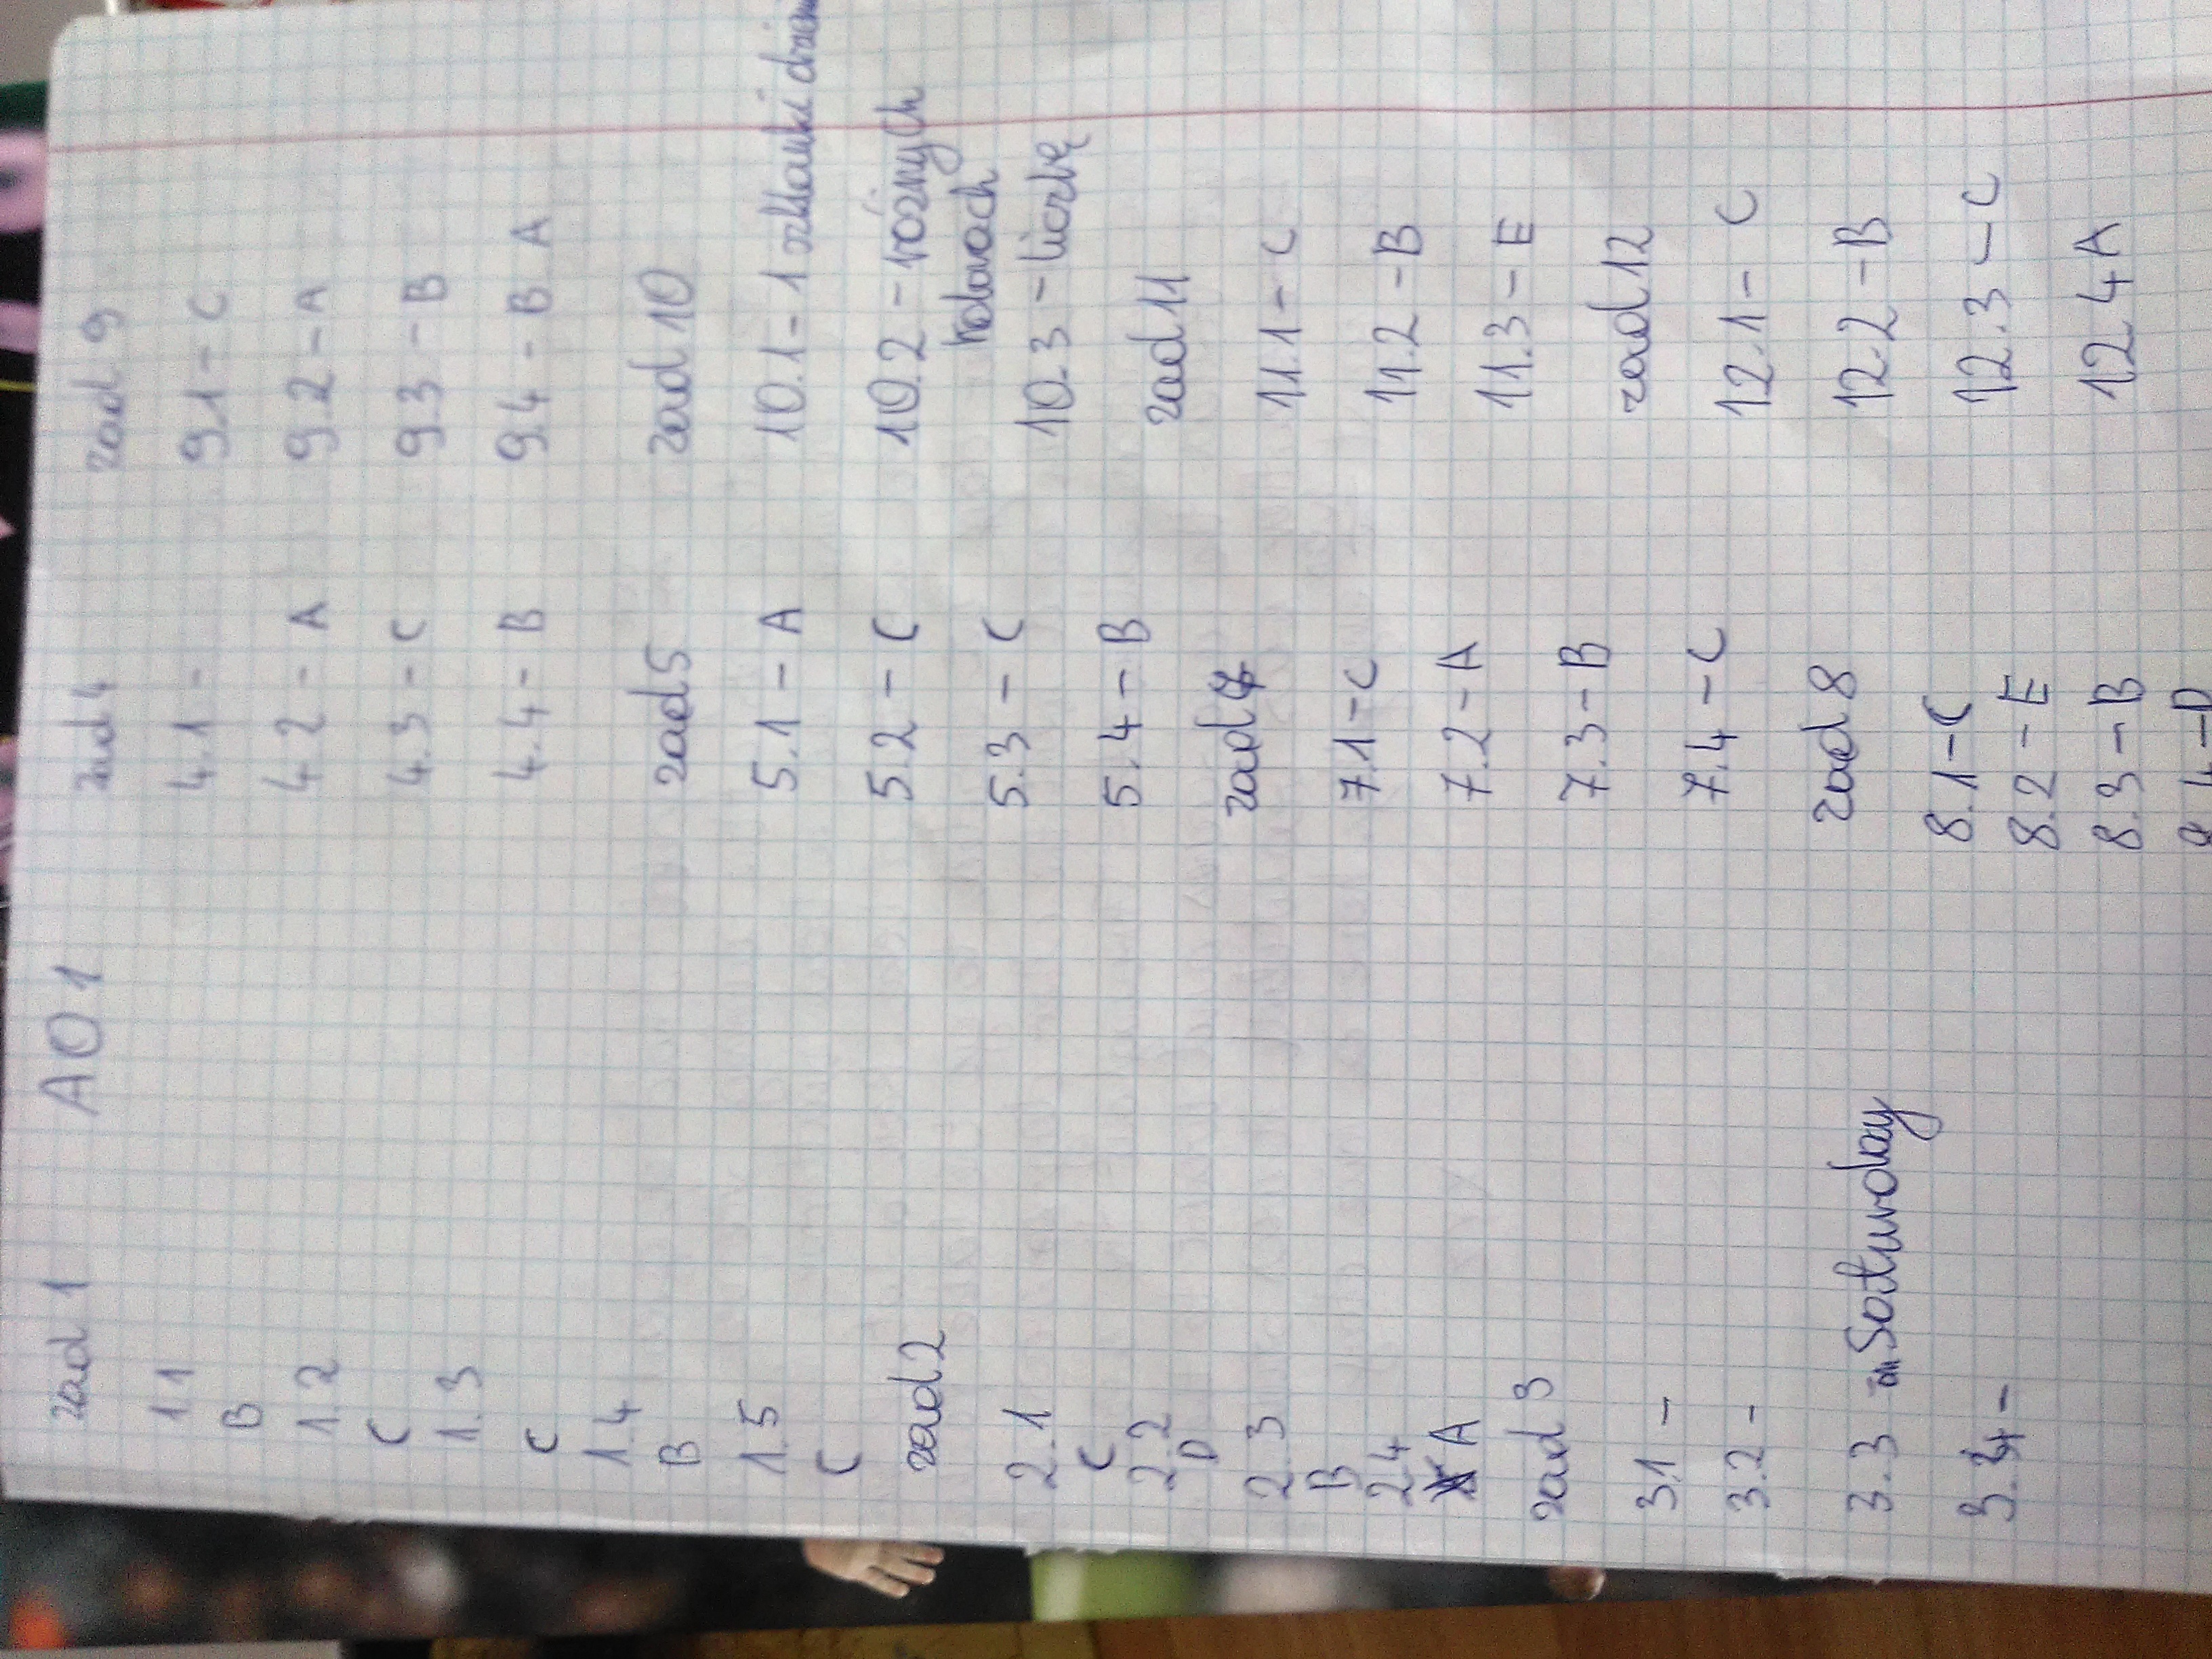 A01
zad 1
1.1
B
1.2
C
1.3
C
1.4
B
1.5
C
zad 2
2.1
C
2.2
D
2.3
B
2.4
A
zad 3
3.1 -
3.2 -
3.3 - on Saturday
3.4 -
zad 4
4.1 -
4.2 - A
4.3 - C
4.4 - B
zad 5
5.1 - A
5.2 - C
5.3 - C
5.4 - B
zad 7
7.1 - C
7.2 - A
7.3 - B
7.4 - C
zad 8
8.1 - C
8.2 - E
8.3 - B
8.4 - D
zad 9
9.1 - C
9.2 - A
9.3 - B
9.4 - B A
zad 10
10.1 - 1 szklanki
10.2 - różnych
kolorach
10.3 - liczbę
zad 11
11.1 - C
11.2 - B
11.3 - E
zad 12
12.1 - C
12.2 - B
12.3 - C
12 4 A